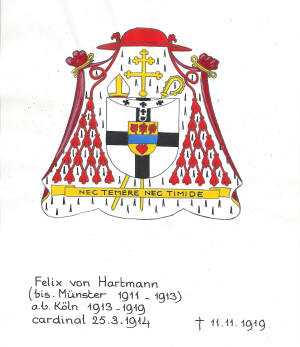 NEC TEMERE NEC TIMIDE
Felix von Hartmann
(bis. Münster 1911 - 1913)
a.b. Köln 1913-1919
cardinal 25.3.1914 † 11.11.1919